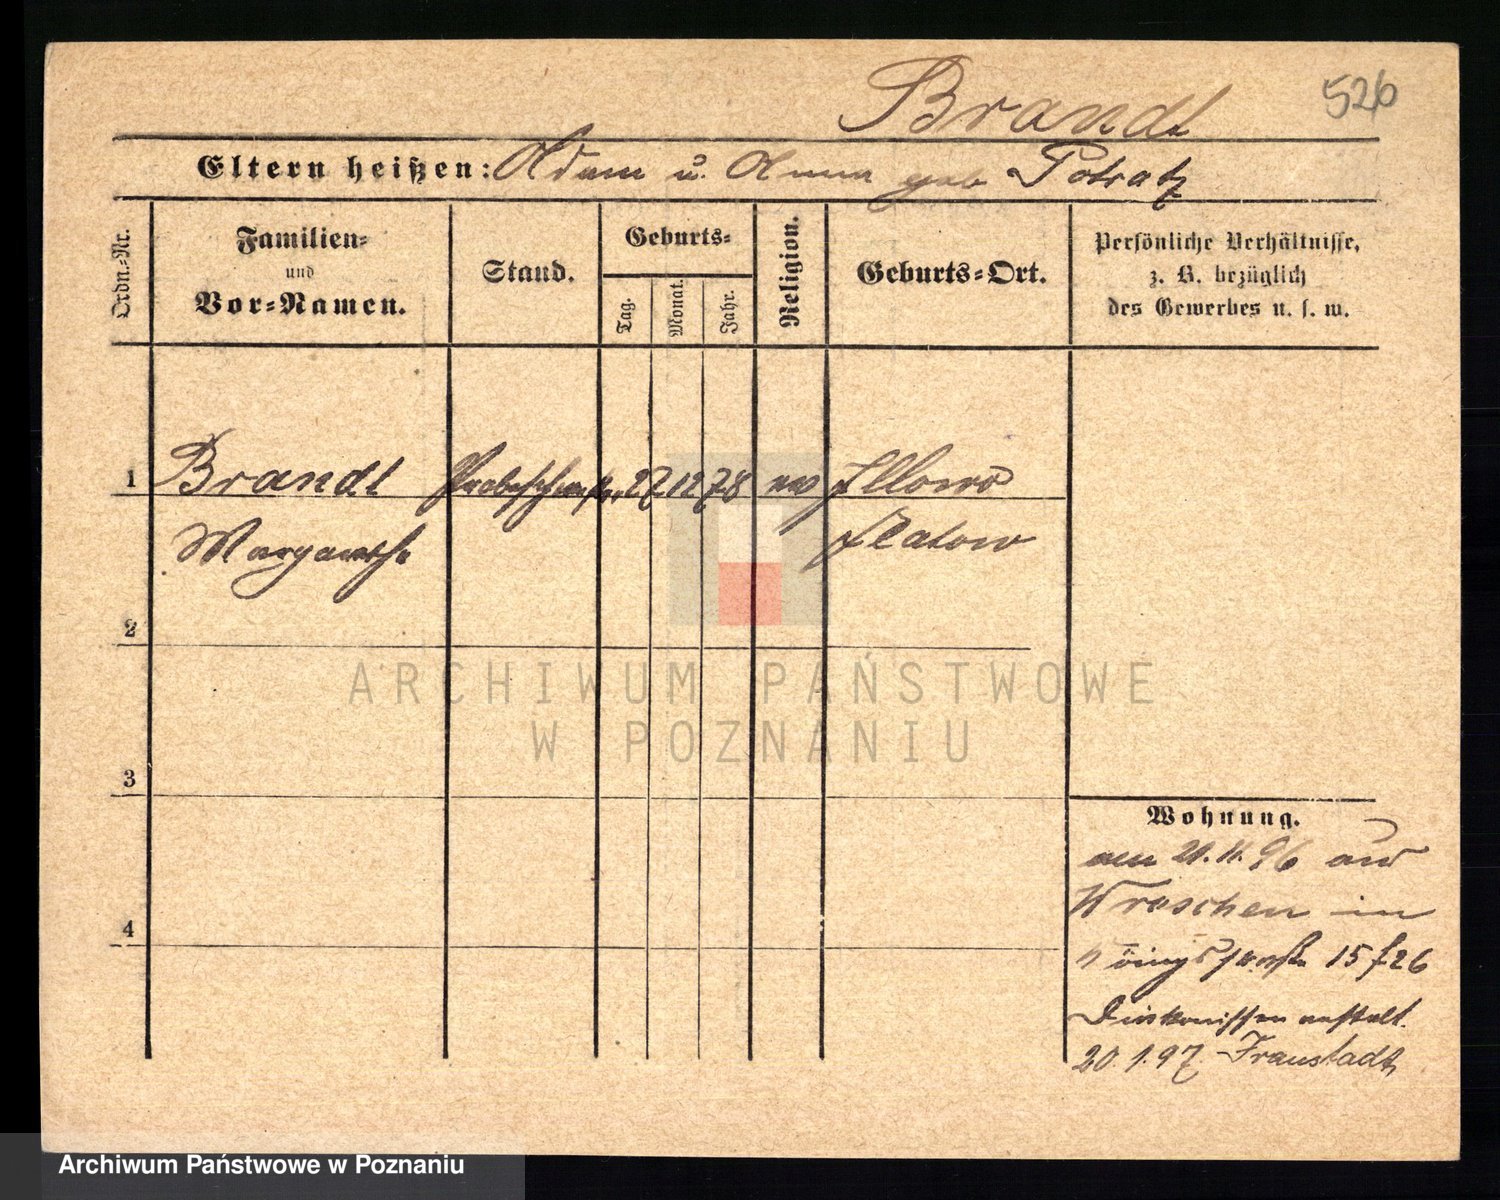 Brandt
526
Eltern heißen: Adam u. Anna geb Potratz
Ordn.-Nr.
Familien-
und
Vor-Namen.
Stand.
Geburts-
Tag.
Monat.
Jahr.
Religion.
Geburts-Ort.
Persönliche Verhältnisse,
z. B. bezüglich
des Gewerbes u. s. w.
1 Brandt Probeschwester 27 12 78 ev Illowo
Margarethe Flatow
2
3
4
Wohnung.
am 20.11.96 aus
Wreschen in
Königsstraße 15 f 26
Diakonissenanstalt.
20.1.97 Fraustadt
ARCHIWUM PAŃSTWOWE
W POZNANIU
Archiwum Państwowe w Poznaniu